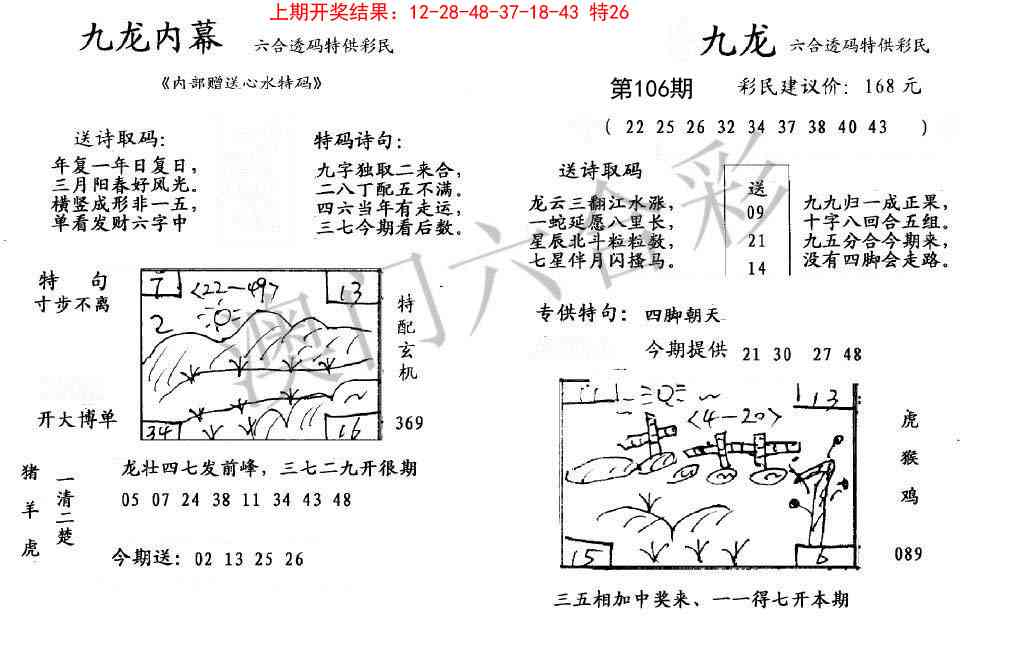 上期开奖结果：12-28-48-37-18-43 特26
九龙内幕 六合透码特供彩民
《内部赠送心水特码》
送诗取码：
年复一年日复日，
三月阳春好风光。
横竖成形非一五，
单看发财六字中
特码诗句：
九字独取二来合，
二八丁配五不满。
四六当年有走运，
三七今期看后数。
特 句
寸步不离
开大博单
7
<22-49>
13
2
34
16
特配玄机
369
猪羊虎
一清二楚
龙壮四七发前峰，三七二九开很期
05 07 24 38 11 34 43 48
今期送：02 13 25 26
九龙 六合透码特供彩民
第106期 彩民建议价：168元
( 22 25 26 32 34 37 38 40 43 )
送诗取码
龙云三翻江水涨，
一蛇延愿八里长，
星辰北斗粒粒数，
七星伴月闪搔马。
送
09
21
14
九九归一成正果，
十字八回合五组。
九五分合今期来，
没有四脚会走路。
专供特句：四脚朝天
今期提供 21 30 27 48
<4-20>
13
15
6
虎
猴
鸡
089
三五相加中奖来、一一得七开本期
澳门六合彩